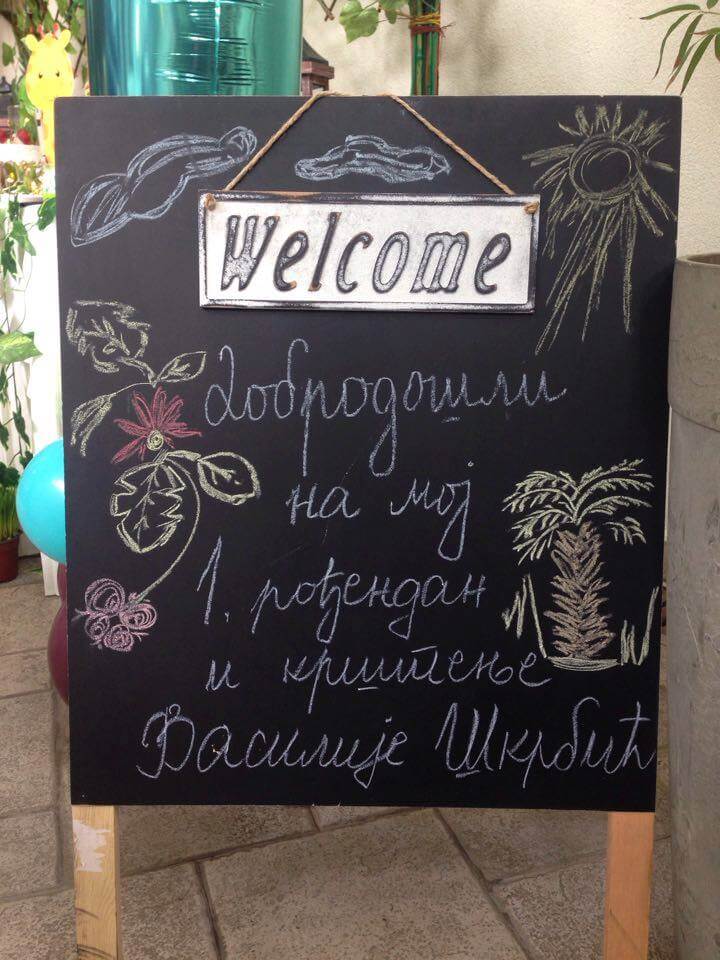 Welcome
Добродошли
на мој
1. рођендан
и крштење
Василије Шкрбић